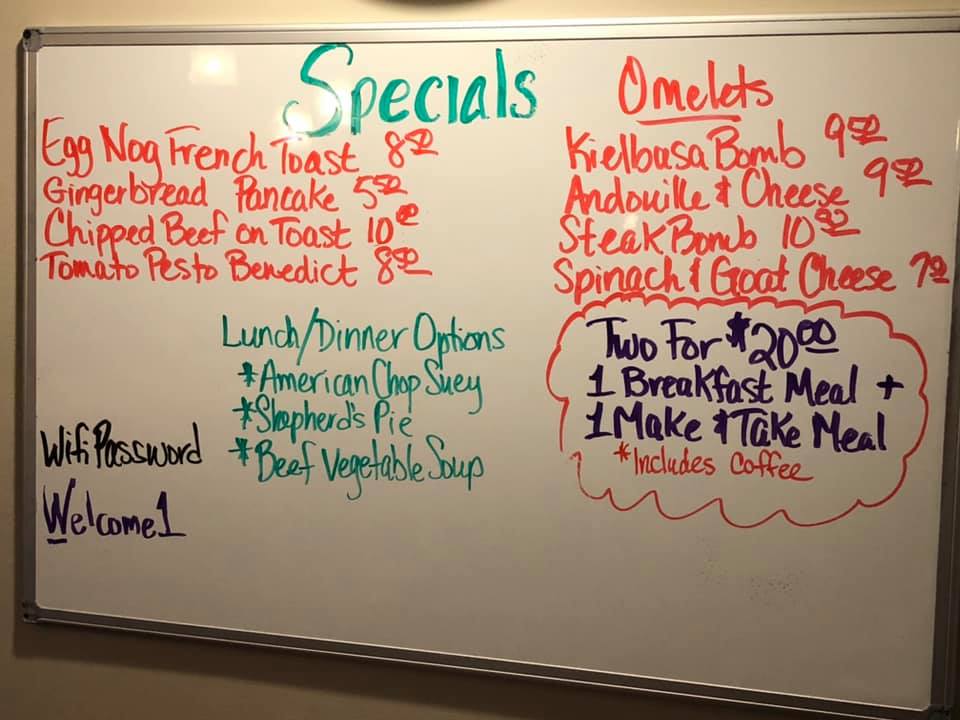 Specials
Egg Nog French Toast 8.50
Gingerbread Pancake 5.50
Chipped Beef on Toast 10.00
Tomato Pesto Benedict 8.50
Omelets
Kielbasa Bomb 9.50
Andouille & Cheese 9.50
Steak Bomb 10.50
Spinach & Goat Cheese
Lunch/Dinner Options
*American Chop Suey
*Shepherd's Pie
*Beef Vegetable Soup
Two For $20.00
1 Breakfast Meal +
1 Make & Take Meal
*Includes Coffee
Wifi Password
Welcome1